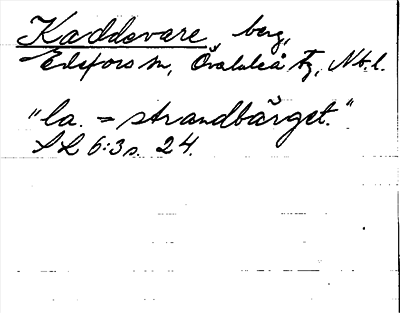 Kaddevare, berg,
Edefors sn, Överluleå tg, Nb.l.
"la. = strandbärget."
SL 6:3 s. 24.